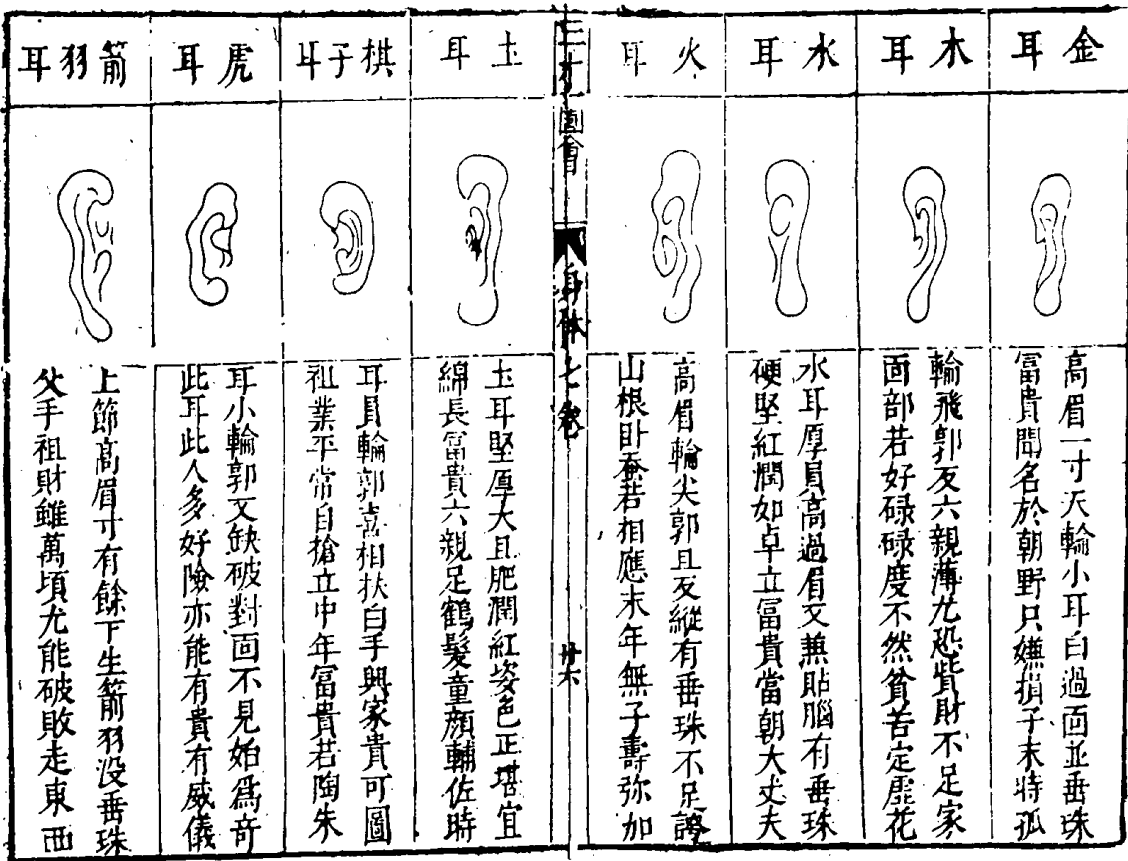 金耳
高眉一寸天輪小耳白過面並垂珠
富貴聞名於朝野只嫌損子末特孤
木耳
輪飛郭反六親薄尤恐貲財不足家
面部若好碌碌度不然貧苦定虛花
水耳
水耳厚員高過眉又兼貼腦有垂珠
硬堅紅潤如卓立冨貴當朝大丈夫
火耳
高眉輪尖郭且反縱有垂珠不足誇
山根卧蚕若相應末年無子壽弥加
三才圖會
身体七卷
廿六
土耳
土耳堅厚大且肥潤紅姿色正堪宜
綿長冨貴六親足鶴髮童顔輔佐時
棋子耳
耳員輪郭喜相扶白手興家貴可圖
祖業平常自搶立中年冨貴若陶朱
虎耳
耳小輪郭又缺破對面不見始爲竒
此耳此人多好險亦能有貴有威儀
箭羽耳
上節高眉寸有餘下生箭羽没垂珠
父手祖財雖萬頃尤能破敗走東西